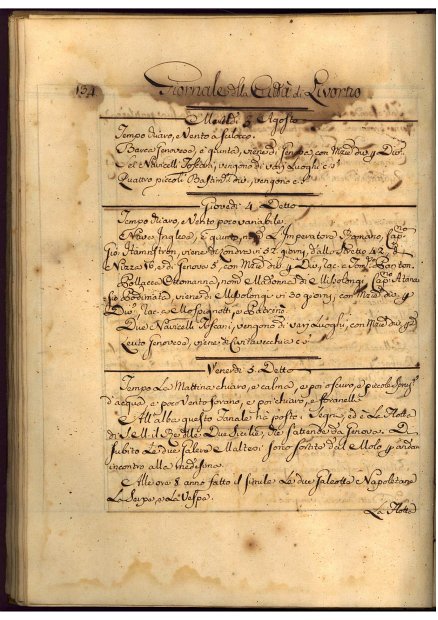 134 Giornale della Città di Livorno
Mercoldì 3 Agosto
Tempo chiaro, e Vento a scilocco.
Barca Genovese, è giunta, viene di Genova, con Mercdie p. Dro.
Sei Navicelli Toscani, vengono di varj Luoghi c. s.
Quattro piccoli Bastimti. dro., vengono c. s.
Giovedì 4 Detto
Tempo chiaro, e Vento poco variabile.
Nave Inglese, è giunta, nomta L'Imperatore Romano, Capno
Gio. viene di Londra in 52 giorni, dallo Stretto 42, da
Nizza 16, e da Genova 5, con Merdie p. Dro, ac. e
Pollacca Ottomanna, nomta Madonna di Missolongi, Capno Atanasio
viene di Missolongi in 30 giorni, con Merdie p.
Dro, ac. a
Due Navicelli Toscani, vengono di varj Luoghi, con Merdie p. dro
Leuto Genovese, viene di Civitavecchia c. s.
Venerdì 5 Detto
Tempo La Mattina chiaro, e calma, e poi oscuro, e piccola
d'acqua, e poco Vento fovano, e poi chiaro, e
All'alba questo Fanale ha posto i Segni, ed è La Flotta
di S. M. il Re delle Due Sicilie, che s'attende da Genova. Di
subito Le due Galere Maltesi sono sortite del Molo p. andar
incontro alla medesima.
Alle ore 8 anno fatto il simile Le due Galeotte Napoletane
La Serpe, e La Vespa.
La Flotta